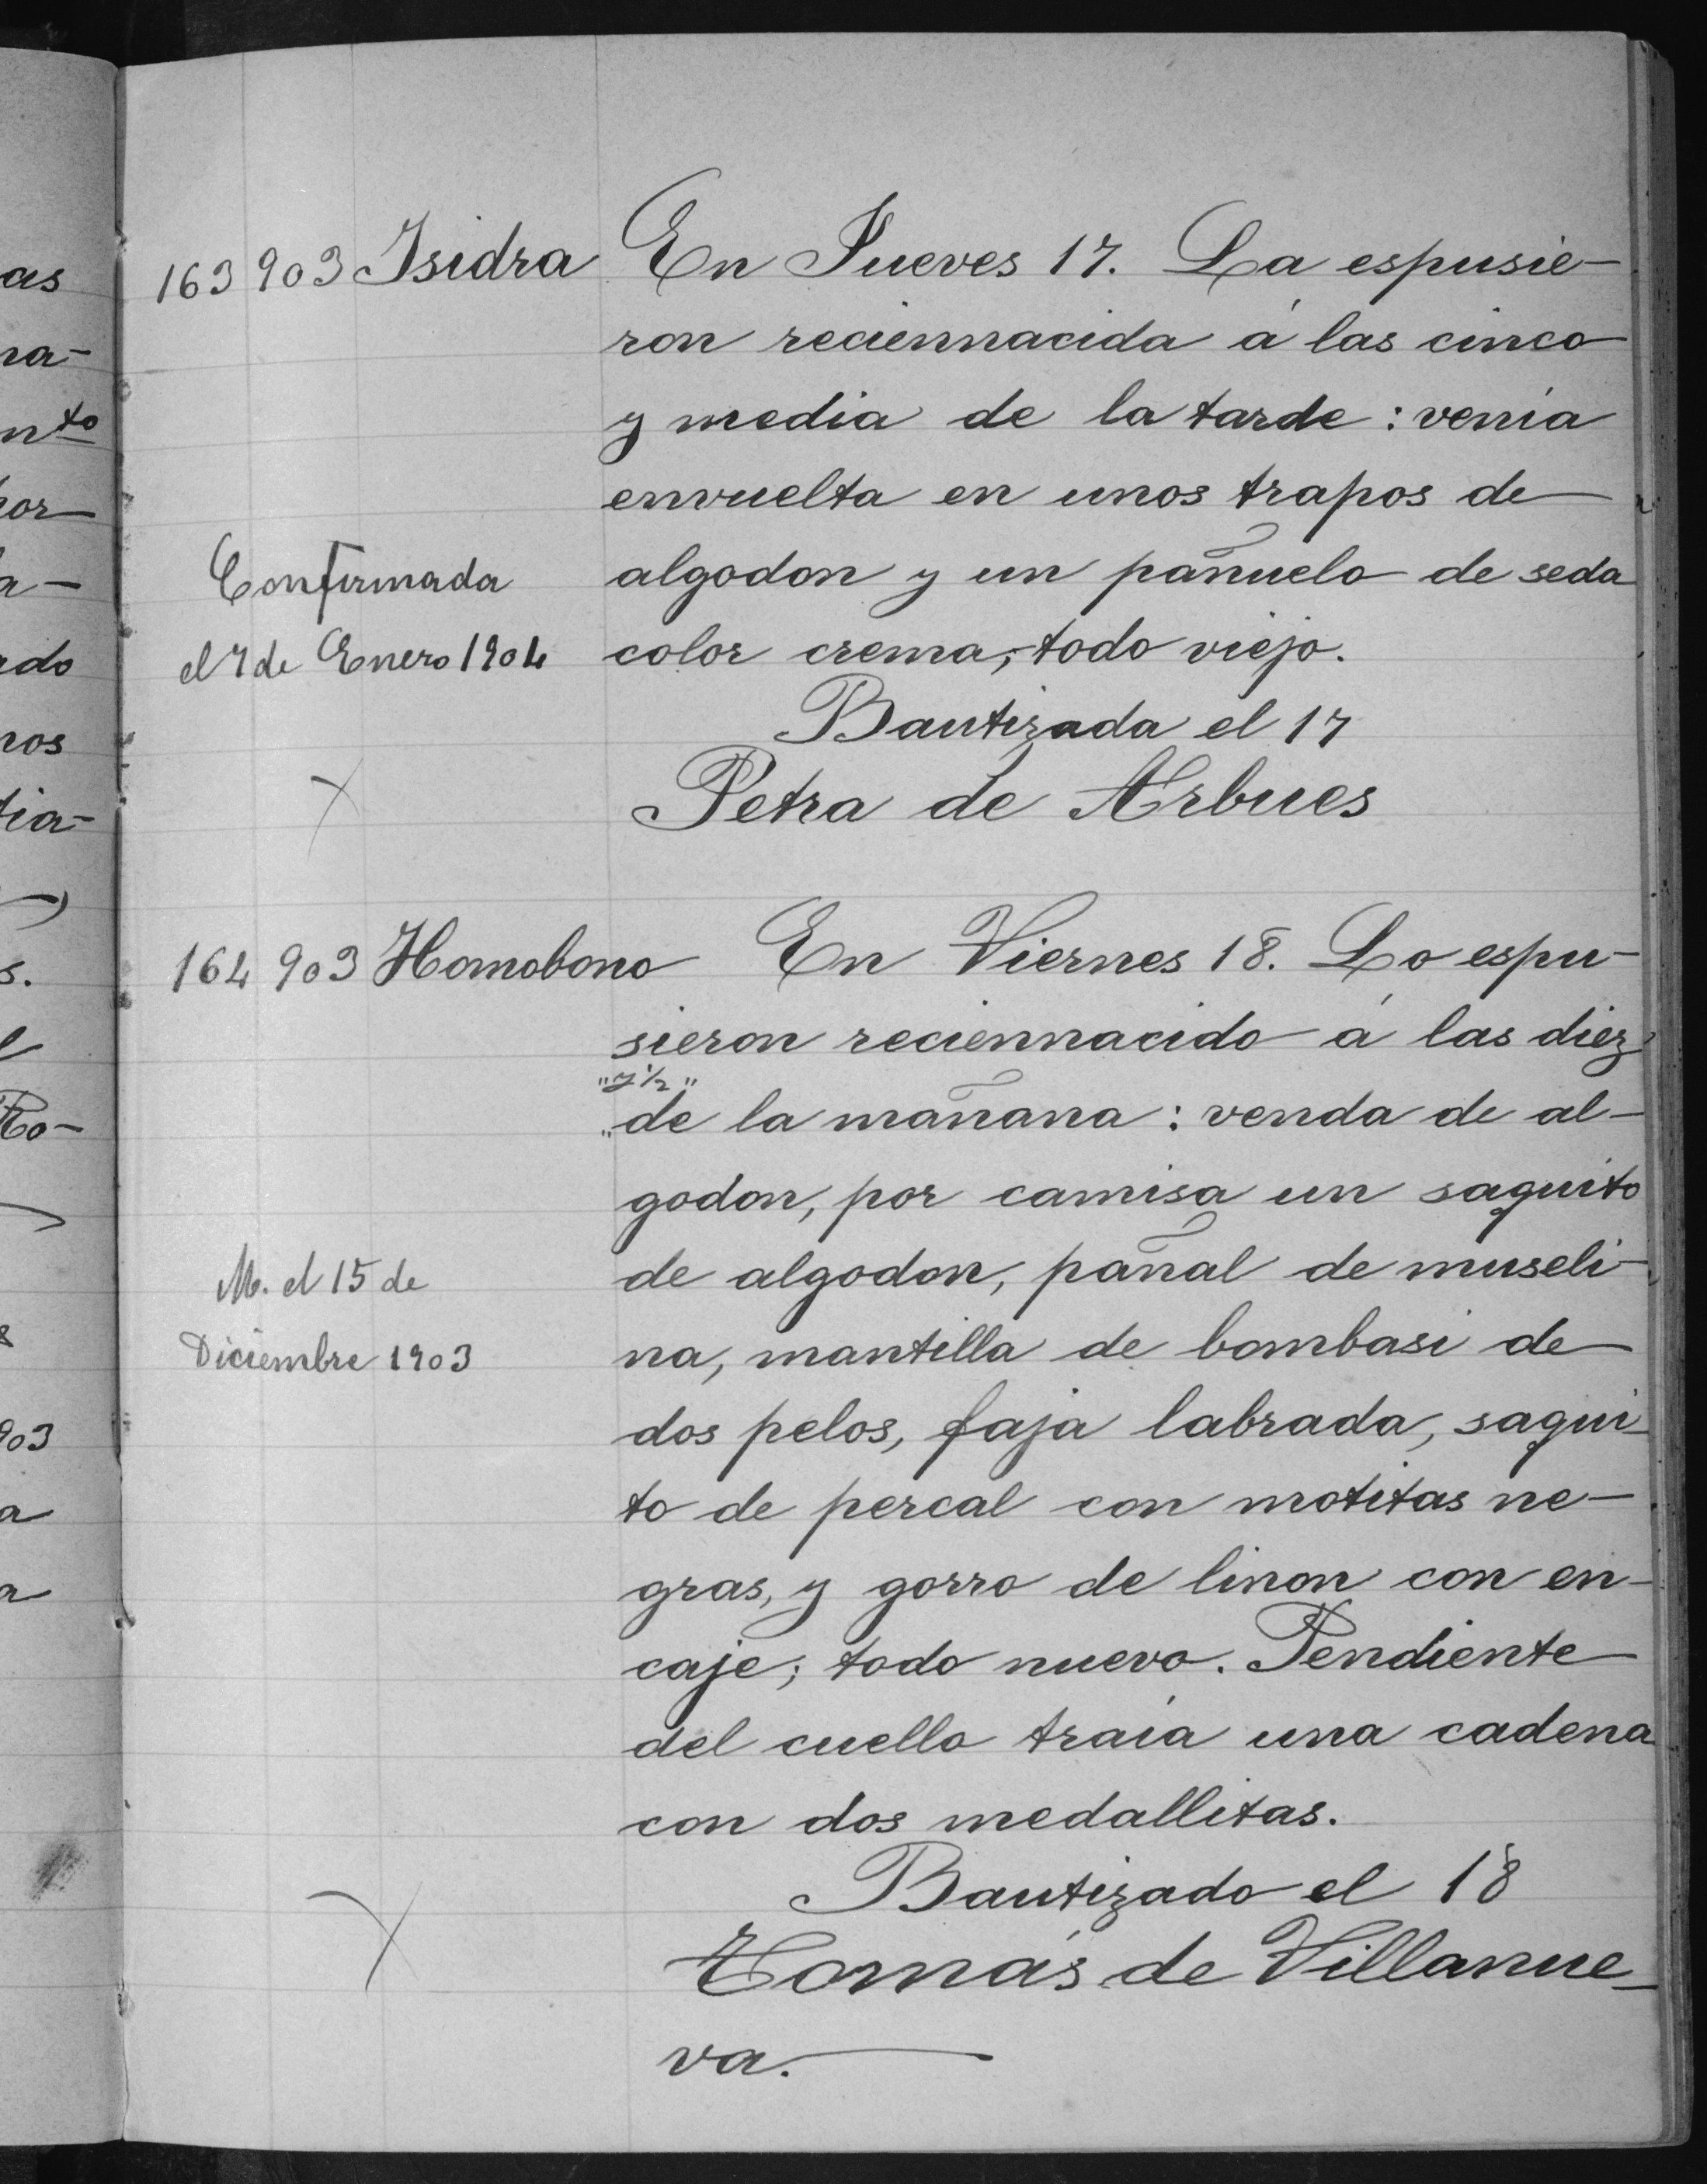 163 903 Isidra En Jueves 17. La espusie-
ron reciennacida á las cinco
y media de la tarde: venía
envuelta en unos trapos de
algodon y un pañuelo de seda
color crema; todo viejo.
Confirmada
el 7 de Enero 1904
Bautizada el 17
Petra de Arbues
164 903 Homobono En Viernes 18. Lo espu-
sieron reciennacido á las diez
"y ½"
"de la mañana: venda de al-
godon, por camisa un saquito
de algodon, pañal de museli-
na, mantilla de bombasi de
dos pelos, faja labrada, saqui-
to de percal con motitas ne-
gras, y gorro de linon con en-
caje; todo nuevo. Pendiente
del cuello traía una cadena
con dos medallitas.
M. el 15 de
Diciembre 1903
Bautizado el 18
Tomás de Villanue-
va.
as
na-
nto
por
a-
ado
nos
dia-
s.
Ro-
903
a
a